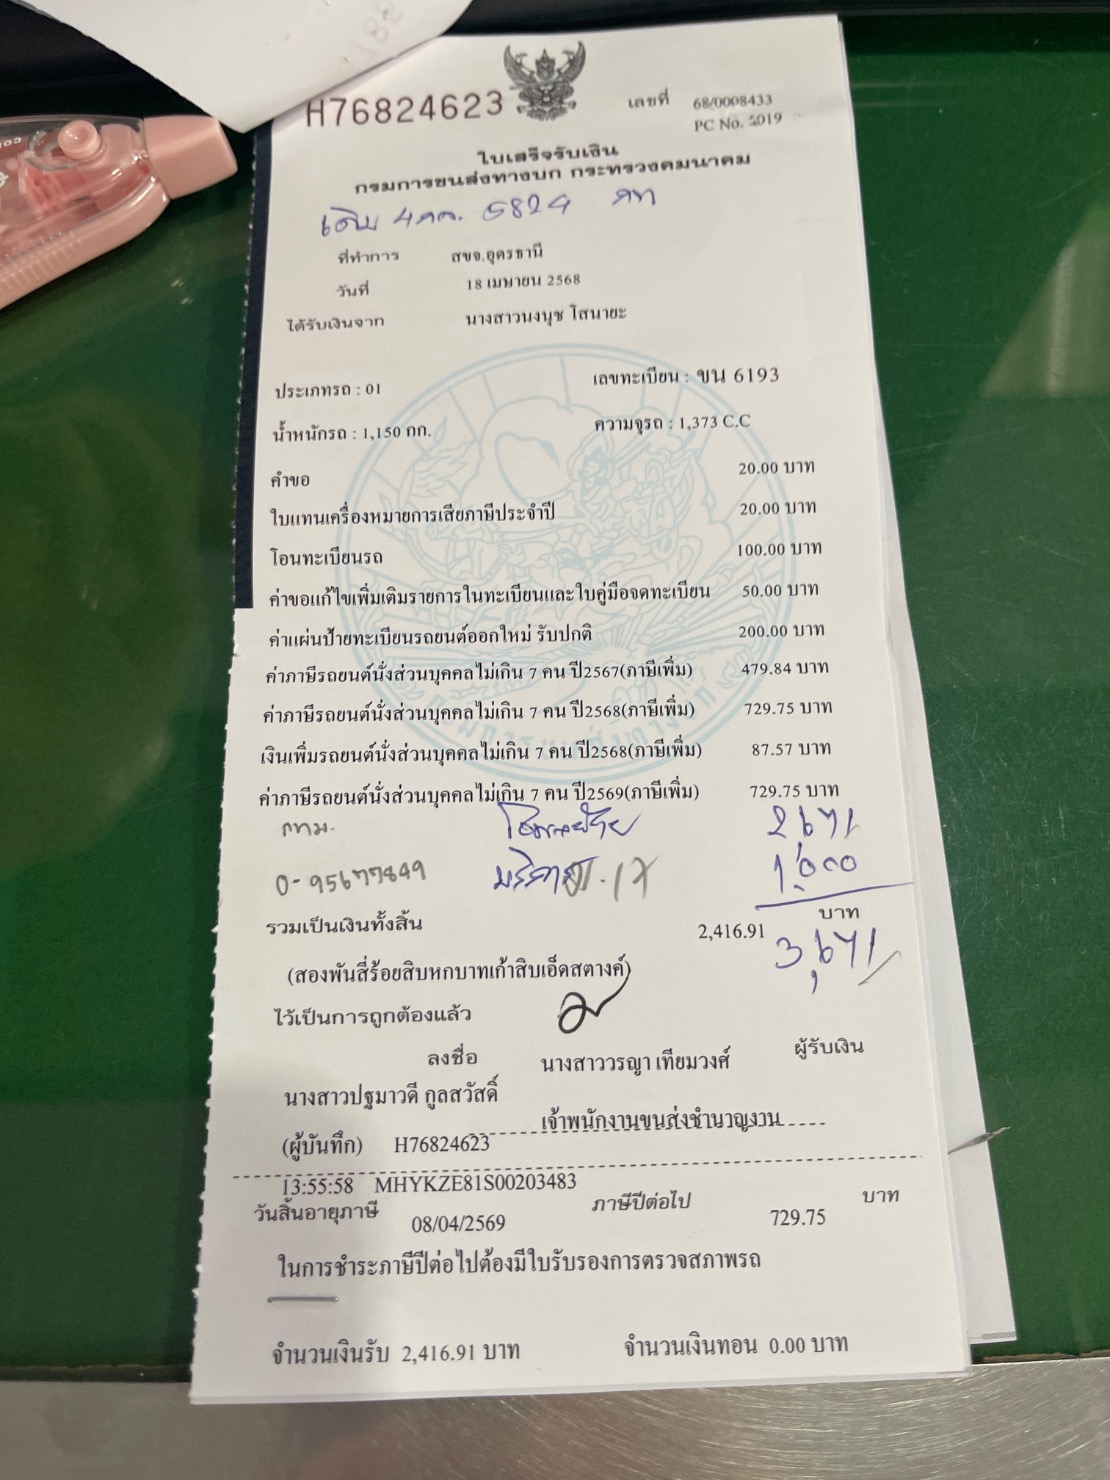 H76824623
เลขที่ 68/0008433
PC No. 2019
ใบเสร็จรับเงิน
กรมการขนส่งทางบก กระทรวงคมนาคม
เดิม 4กก. 5824 กท
ที่ทำการ สขจ.อุดรธานี
วันที่ 18 เมษายน 2568
ได้รับเงินจาก นางสาวนงนุช โสนายะ
ประเภทรถ : 01 เลขทะเบียน : ขน 6193
น้ำหนักรถ : 1,150 กก. ความจุรถ : 1,373 C.C
คำขอ 20.00 บาท
ใบแทนเครื่องหมายการเสียภาษีประจำปี 20.00 บาท
โอนทะเบียนรถ 100.00 บาท
ค่าขอแก้ไขเพิ่มเติมรายการในทะเบียนและใบคู่มือจดทะเบียน 50.00 บาท
ค่าแผ่นป้ายทะเบียนรถยนต์ออกใหม่ รับปกติ 200.00 บาท
ค่าภาษีรถยนต์นั่งส่วนบุคคลไม่เกิน 7 คน ปี2567(ภาษีเพิ่ม) 479.84 บาท
ค่าภาษีรถยนต์นั่งส่วนบุคคลไม่เกิน 7 คน ปี2568(ภาษีเพิ่ม) 729.75 บาท
เงินเพิ่มรถยนต์นั่งส่วนบุคคลไม่เกิน 7 คน ปี2568(ภาษีเพิ่ม) 87.57 บาท
ค่าภาษีรถยนต์นั่งส่วนบุคคลไม่เกิน 7 คน ปี2569(ภาษีเพิ่ม) 729.75 บาท
กทม. 2671
บริการ 1,000
รวมเป็นเงินทั้งสิ้น 2,416.91 บาท
3,671
(สองพันสี่ร้อยสิบหกบาทเก้าสิบเอ็ดสตางค์)
ไว้เป็นการถูกต้องแล้ว
ลงชื่อ นางสาววรญา เทียมวงศ์ ผู้รับเงิน
นางสาวปฐมาวดี กูลสวัสดิ์
เจ้าพนักงานขนส่งชำนาญงาน
(ผู้บันทึก) H76824623
13:55:58 MHYKZE81S00203483
วันสิ้นอายุภาษี 08/04/2569 ภาษีปีต่อไป 729.75 บาท
ในการชำระภาษีปีต่อไปต้องมีใบรับรองการตรวจสภาพรถ
จำนวนเงินรับ 2,416.91 บาท จำนวนเงินทอน 0.00 บาท